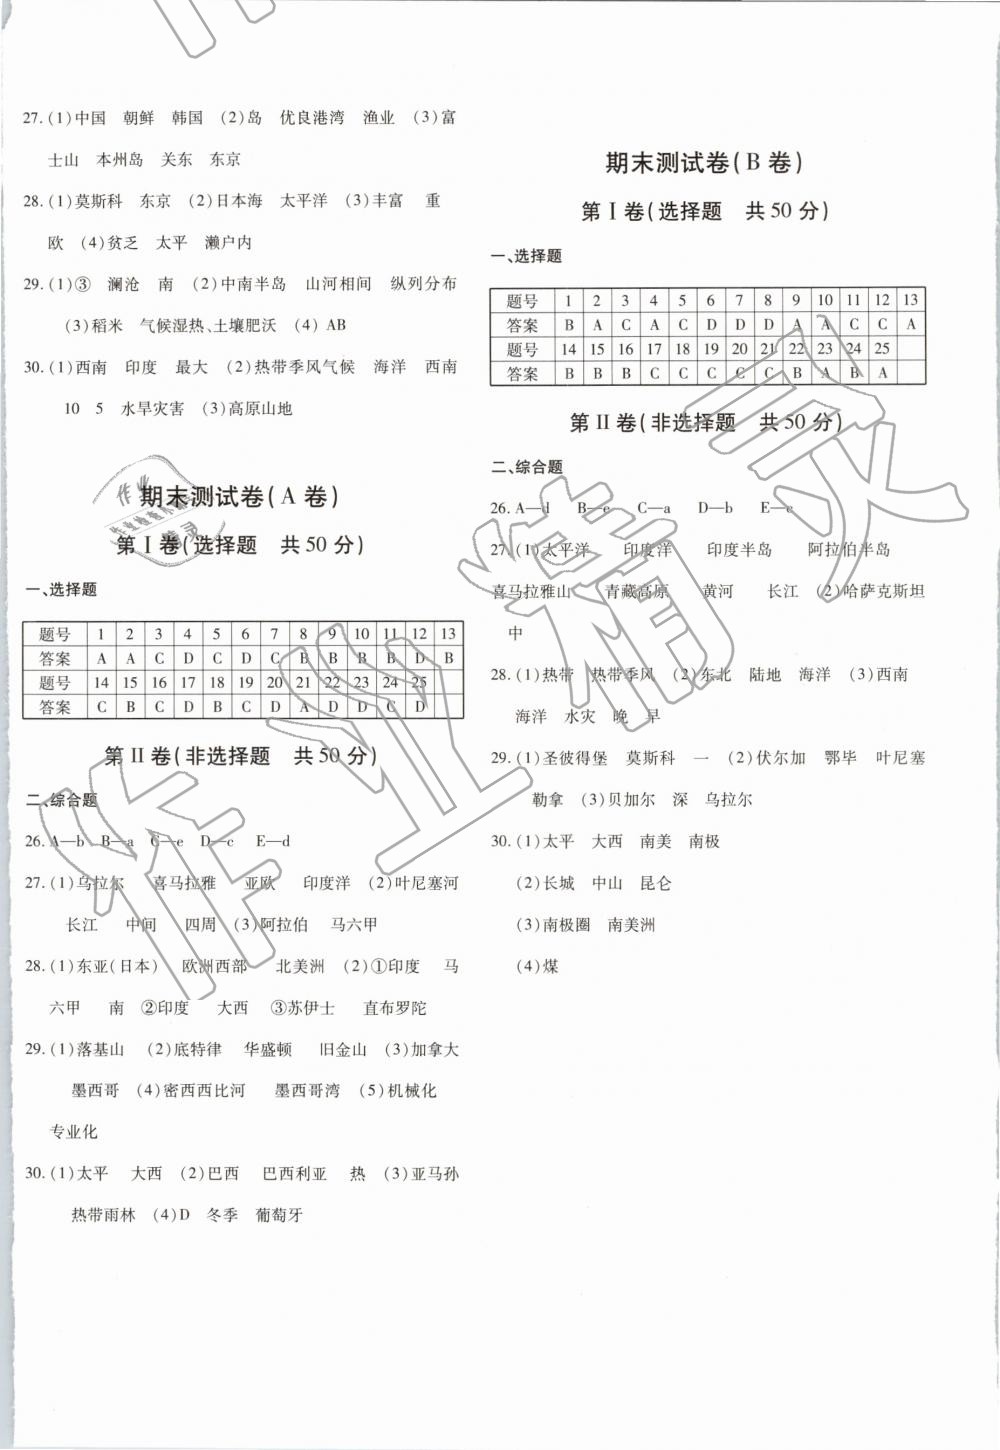 27. (1)中国　朝鲜　韩国　(2)岛　优良港湾　渔业　(3)富
士山　本州岛　关东　东京
28. (1)莫斯科　东京　(2)日本海　太平洋　(3)丰富　重
欧　(4)贫乏　太平　濑户内
29. (1)③　澜沧　南　(2)中南半岛　山河相间　纵列分布
(3)稻米　气候湿热、土壤肥沃　(4) AB
30. (1)西南　印度　最大　(2)热带季风气候　海洋　西南
10　5　水旱灾害　(3)高原山地
期末测试卷(A卷)
第Ⅰ卷(选择题　共50分)
一、选择题
题号 1 2 3 4 5 6 7 8 9 10 11 12 13
答案 A A C D C D C B B B B D B
题号 14 15 16 17 18 19 20 21 22 23 24 25
答案 C B C D B C D A D D C D
第Ⅱ卷(非选择题　共50分)
二、综合题
26. A—b　B—a　C—e　D—c　E—d
27. (1)乌拉尔　喜马拉雅　亚欧　印度洋　(2)叶尼塞河
长江　中间　四周　(3)阿拉伯　马六甲
28. (1)东亚(日本)　欧洲西部　北美洲　(2)①印度　马
六甲　南　②印度　大西　③苏伊士　直布罗陀
29. (1)落基山　(2)底特律　华盛顿　旧金山　(3)加拿大
墨西哥　(4)密西西比河　墨西哥湾　(5)机械化
专业化
30. (1)太平　大西　(2)巴西　巴西利亚　热　(3)亚马孙
热带雨林　(4)D　冬季　葡萄牙
期末测试卷(B卷)
第Ⅰ卷(选择题　共50分)
一、选择题
题号 1 2 3 4 5 6 7 8 9 10 11 12 13
答案 B A C A C D D D A A C C A
题号 14 15 16 17 18 19 20 21 22 23 24 25
答案 B B B C C C C C B A B A
第Ⅱ卷(非选择题　共50分)
二、综合题
26. A—d　B—e　C—a　D—b　E—c
27. (1)太平洋　印度洋　印度半岛　阿拉伯半岛
喜马拉雅山　青藏高原　黄河　长江　(2)哈萨克斯坦
中
28. (1)热带　热带季风　(2)东北　陆地　海洋　(3)西南
海洋　水灾　晚　早
29. (1)圣彼得堡　莫斯科　一　(2)伏尔加　鄂毕　叶尼塞
勒拿　(3)贝加尔　深　乌拉尔
30. (1)太平　大西　南美　南极
(2)长城　中山　昆仑
(3)南极圈　南美洲
(4)煤
作业精灵